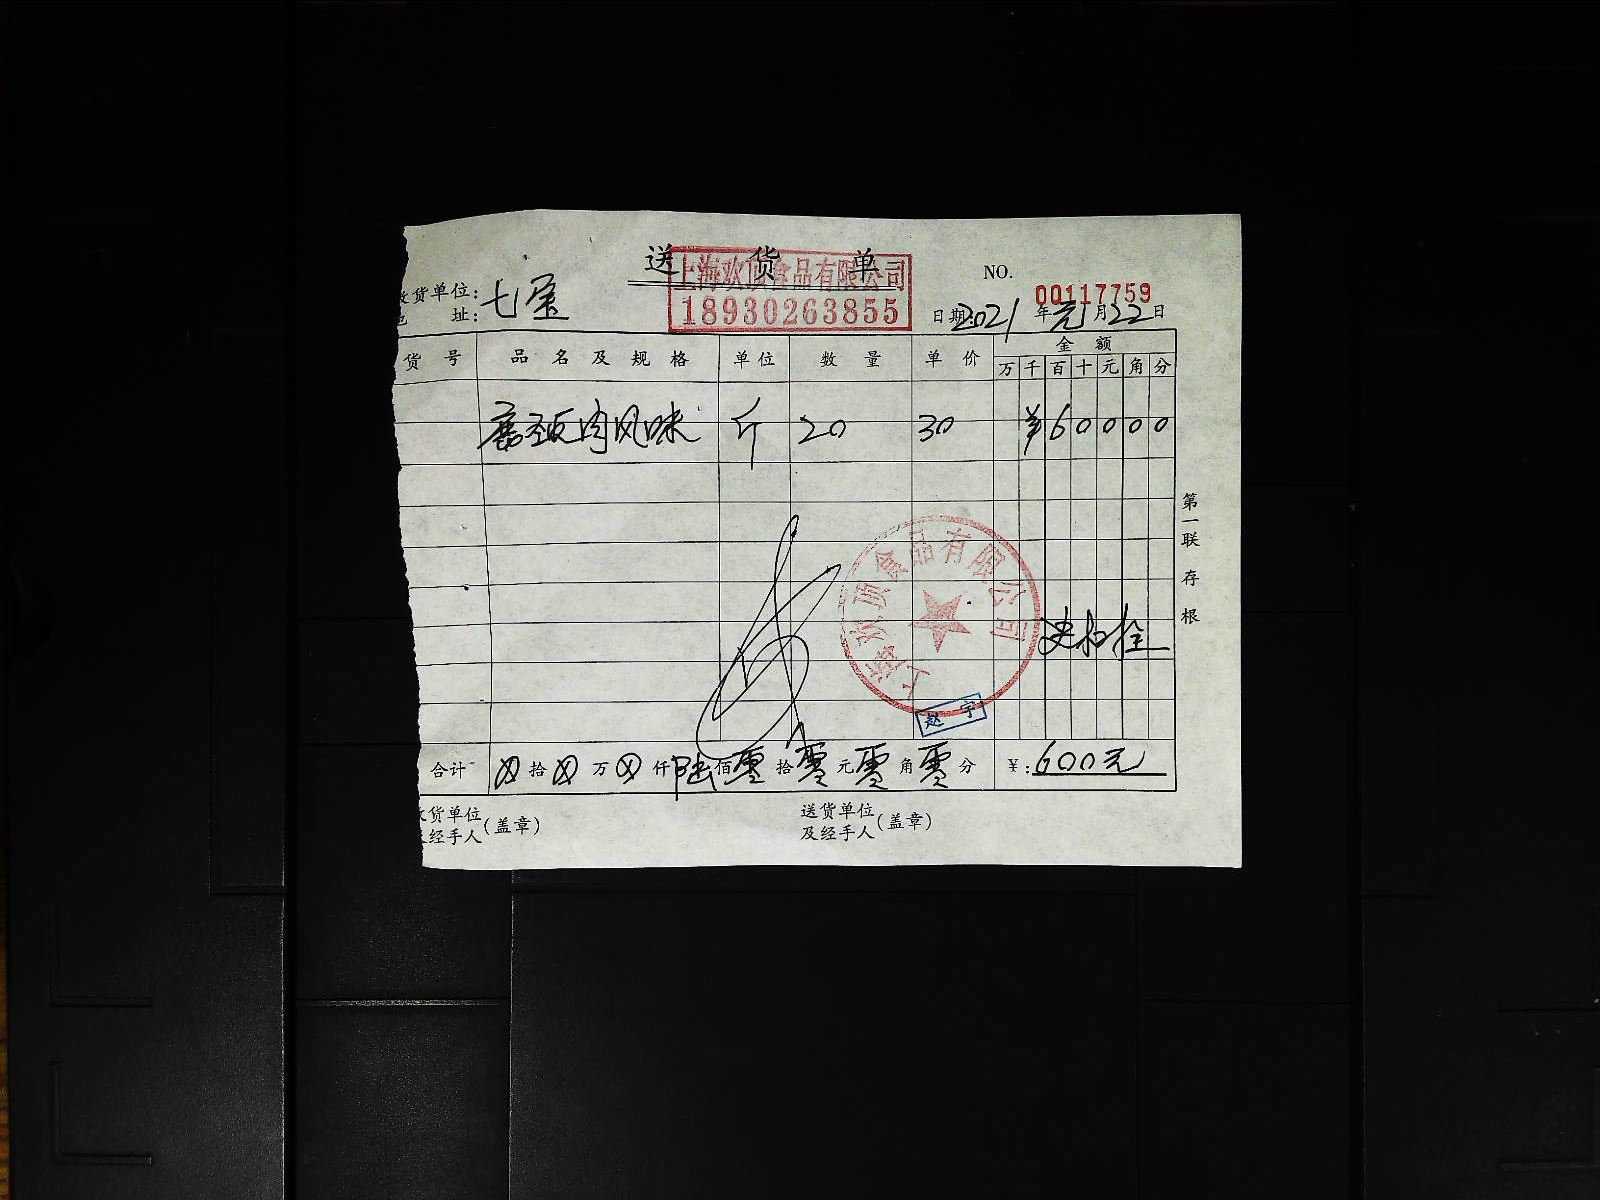 送货单
上海欢顶食品有限公司
18930263855
NO. 00117759
收货单位: 七
地 址:
日期 2021 年 元 月 22 日
货号 品名及规格 单位 数量 单价 金额
万 千 百 十 元 角 分
颈肉风味 斤 20 30 ¥60000
第一联 存根
上海欢顶食品有限公司
赵宇
合计 拾 万 仟 陆 佰 零 拾 零 元 零 角 零 分 ¥: 600元
收货单位及经手人(盖章)
送货单位及经手人(盖章)